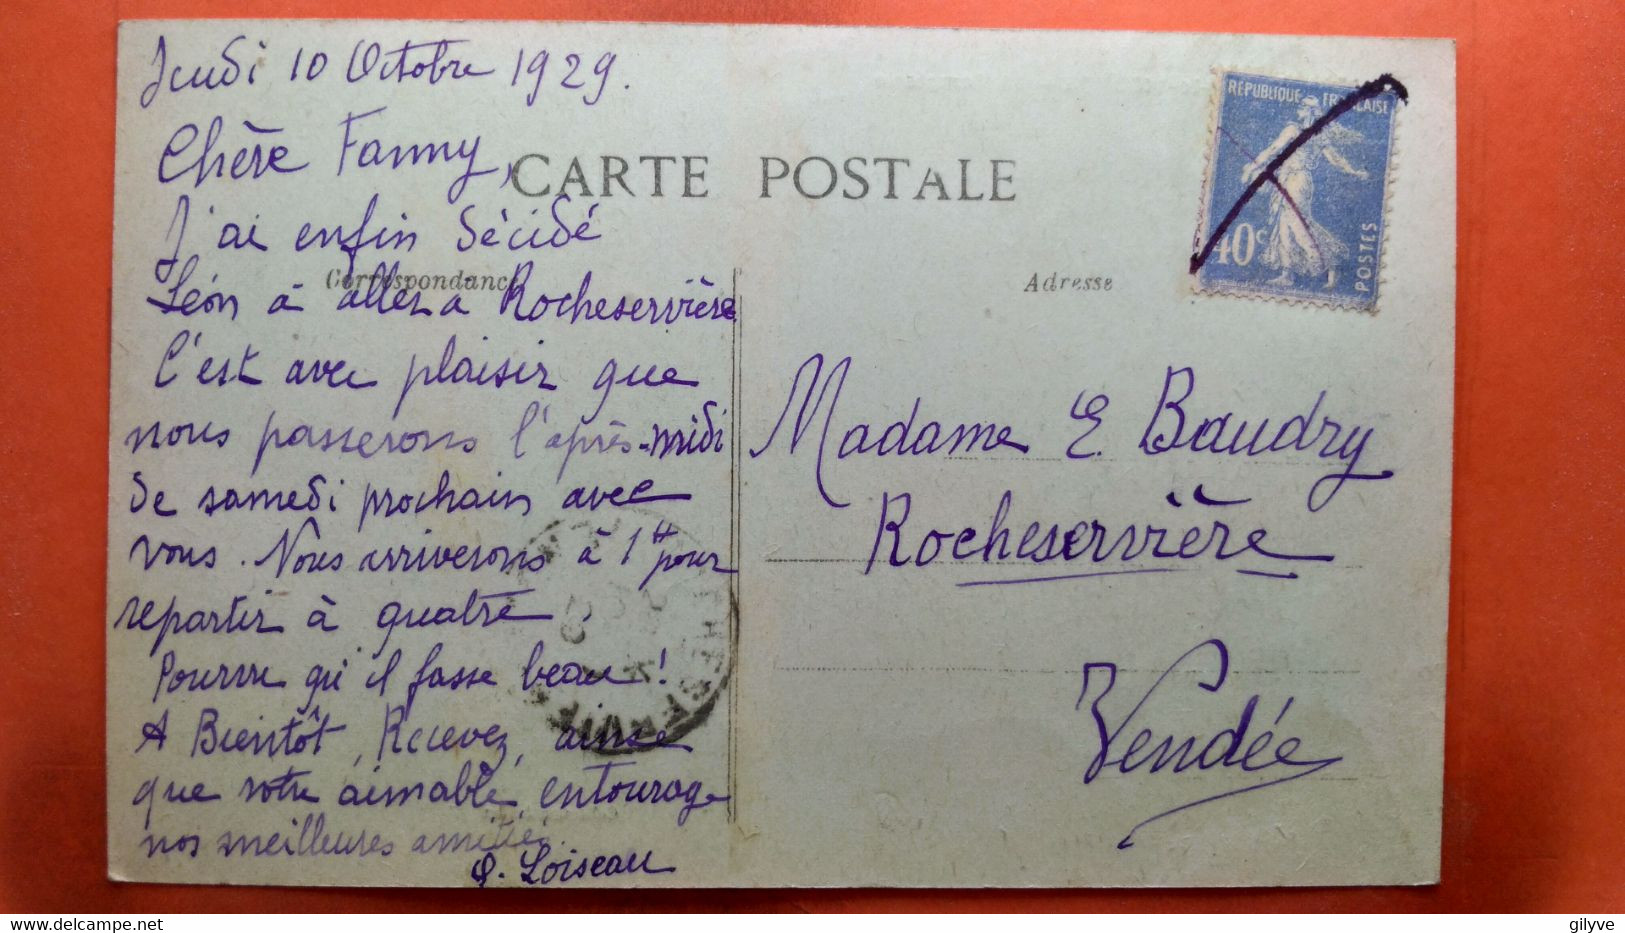 Jeudi 10 Octobre 1929.
Chère Fanny,
J'ai enfin décidé
Léon à aller à Rocheservière
C'est avec plaisir que
nous passerons l'après-midi
de samedi prochain avec
vous. Nous arriverons à 1H pour
repartir à quatre.
Pourvu qu'il fasse beau !
A Bientôt, Recevez, ainsi
que votre aimable entourage
nos meilleures amitiés
Loiseau
CARTE POSTALE
Correspondance
Adresse
REPUBLIQUE FRANÇAISE
40c
POSTES
Madame E. Baudry
Rocheservière
Vendée
gilyve